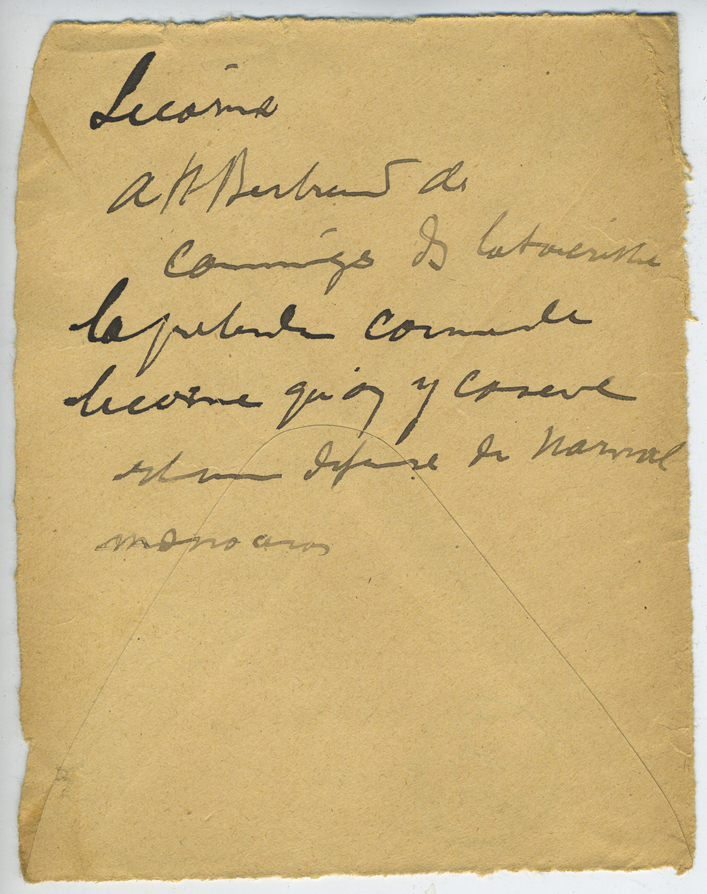 Licorne
a St Bertrand de
Comminges Ds la sacristie
la pretendu corne de
licorne qu'on y conserve
est une defense de Narval
monoceros